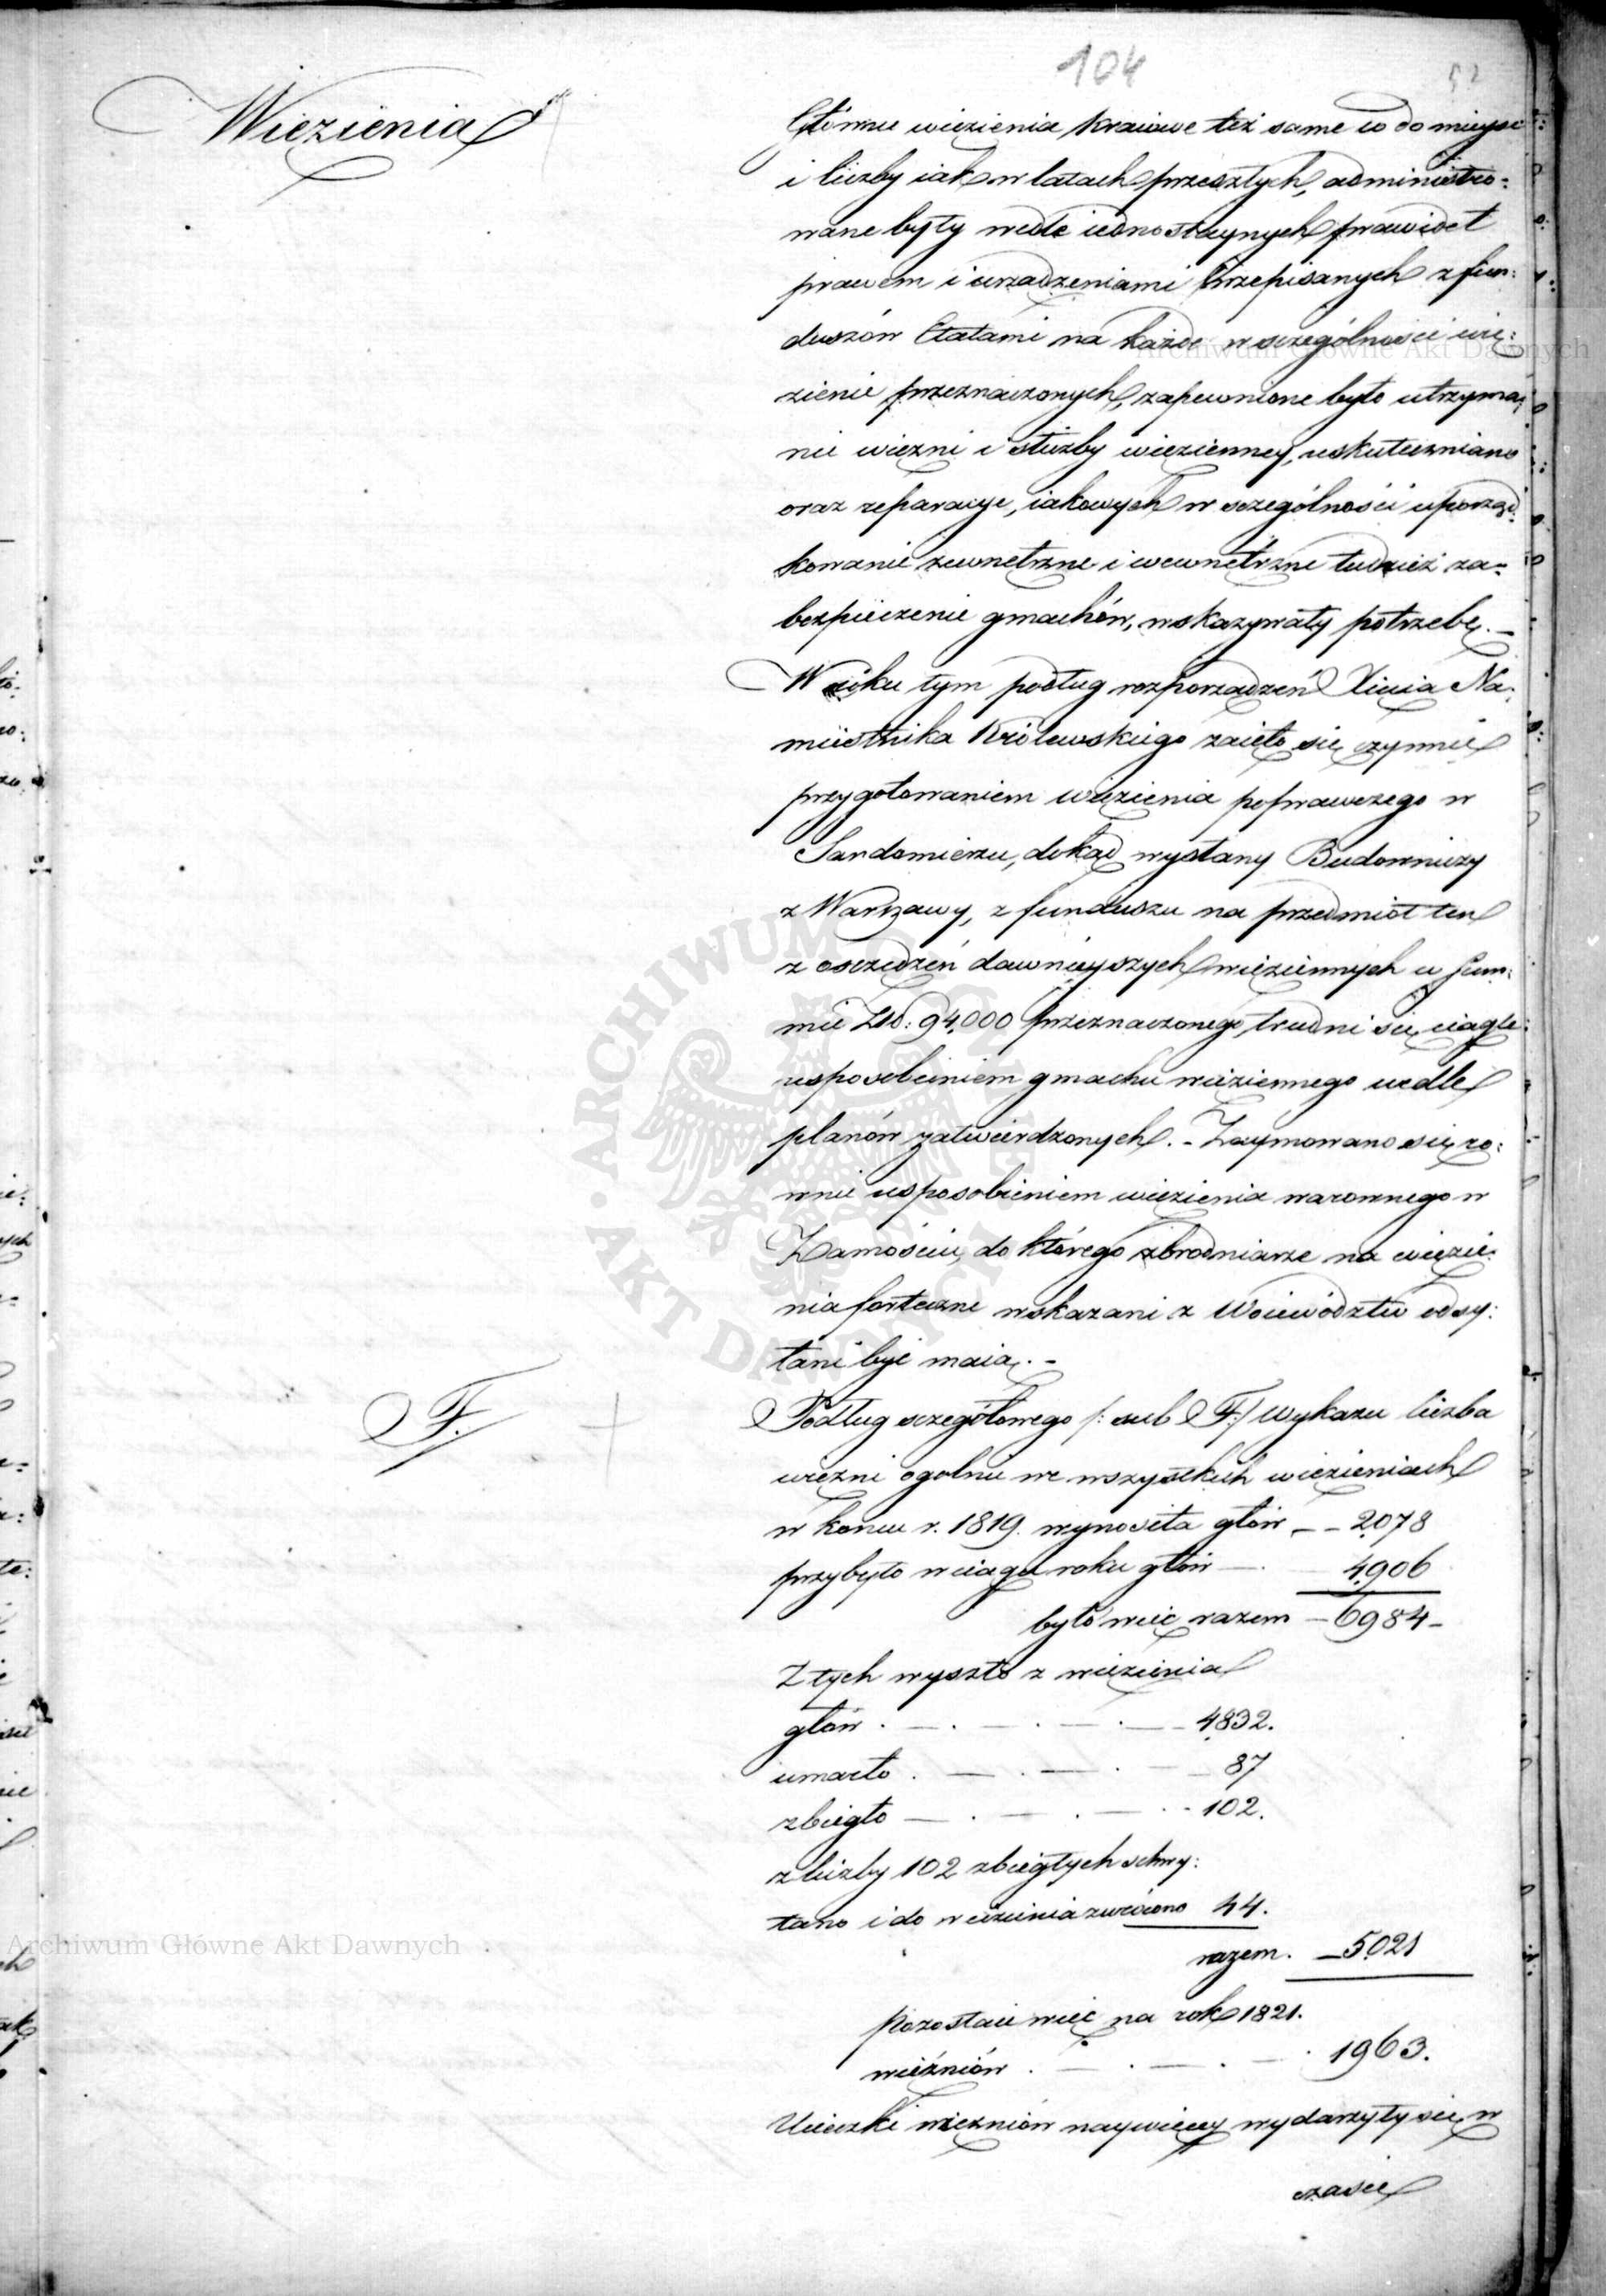 104
52
Więzienia
Główne więzienia kraiowe też same co do mieysc
i liczby iak w latach przeszłych, administro:
wane były wedle iednostaynych prawideł
prawem i urządzeniami przepisanych z fun:
duszów Etatami na każde w sczególności wię:
zienie przeznaczonych, zapewnione było utrzyma:
nie więzni i służby więzienney, uskuteczniano
oraz reparacye, iakowych w sczególności uporząd:
kowanie zewnętrzne i wewnętrzne tudzież za:
bezpieczenie gmachów, wskazywały potrzebę. –
W roku tym podług rozporządzeń Xięcia Na:
miestnika Królewskiego zaięto się czynnie
przygotowaniem więzienia poprawczego w
Sandomierzu, dokąd wysłany Budowniczy
z Warszawy, z funduszu na przedmiot ten
z osczędzeń dawnieyszych więziennych w Sum:
mie Złp: 94,000 przeznaczonego, trudni się ciągle
usposobieniem gmachu więziennego wedle
planów zatwierdzonych. – Zaymowano się ró:
wnie usposobieniem więzienia warownego w
Zamościu, do którego zbrodniarze na więzie:
nia forteczne wskazani z Woiewództw odsy:
łani być maią. –
F.
Podług sczegółowego /: sub F :/ wykazu liczba
więzni ogolnie we wszystkich więzieniach
w końcu r. 1819. wynosiła głów – – 2078
przybyło w ciągu roku głów – 4906
było więc razem – 6984 –
Z tych wyszło z więzienia
głów . – . – . – . – 4832.
umarło . – . – . – 87
zbiegło – . – . – . - 102.
z liczby 102 zbiegłych schwy:
tano i do więzienia zwrócono 44.
razem. – 5021
pozostaie więc na rok 1821.
więźniów . – . – . – . 1963.
Ucieczki więzniów naywięcey wydarzyły się w
czasie
Archiwum Główne Akt Dawnych
Archiwum Główne Akt Dawnych
ARCHIWUM GŁÓWNE · AKT DAWNYCH ·